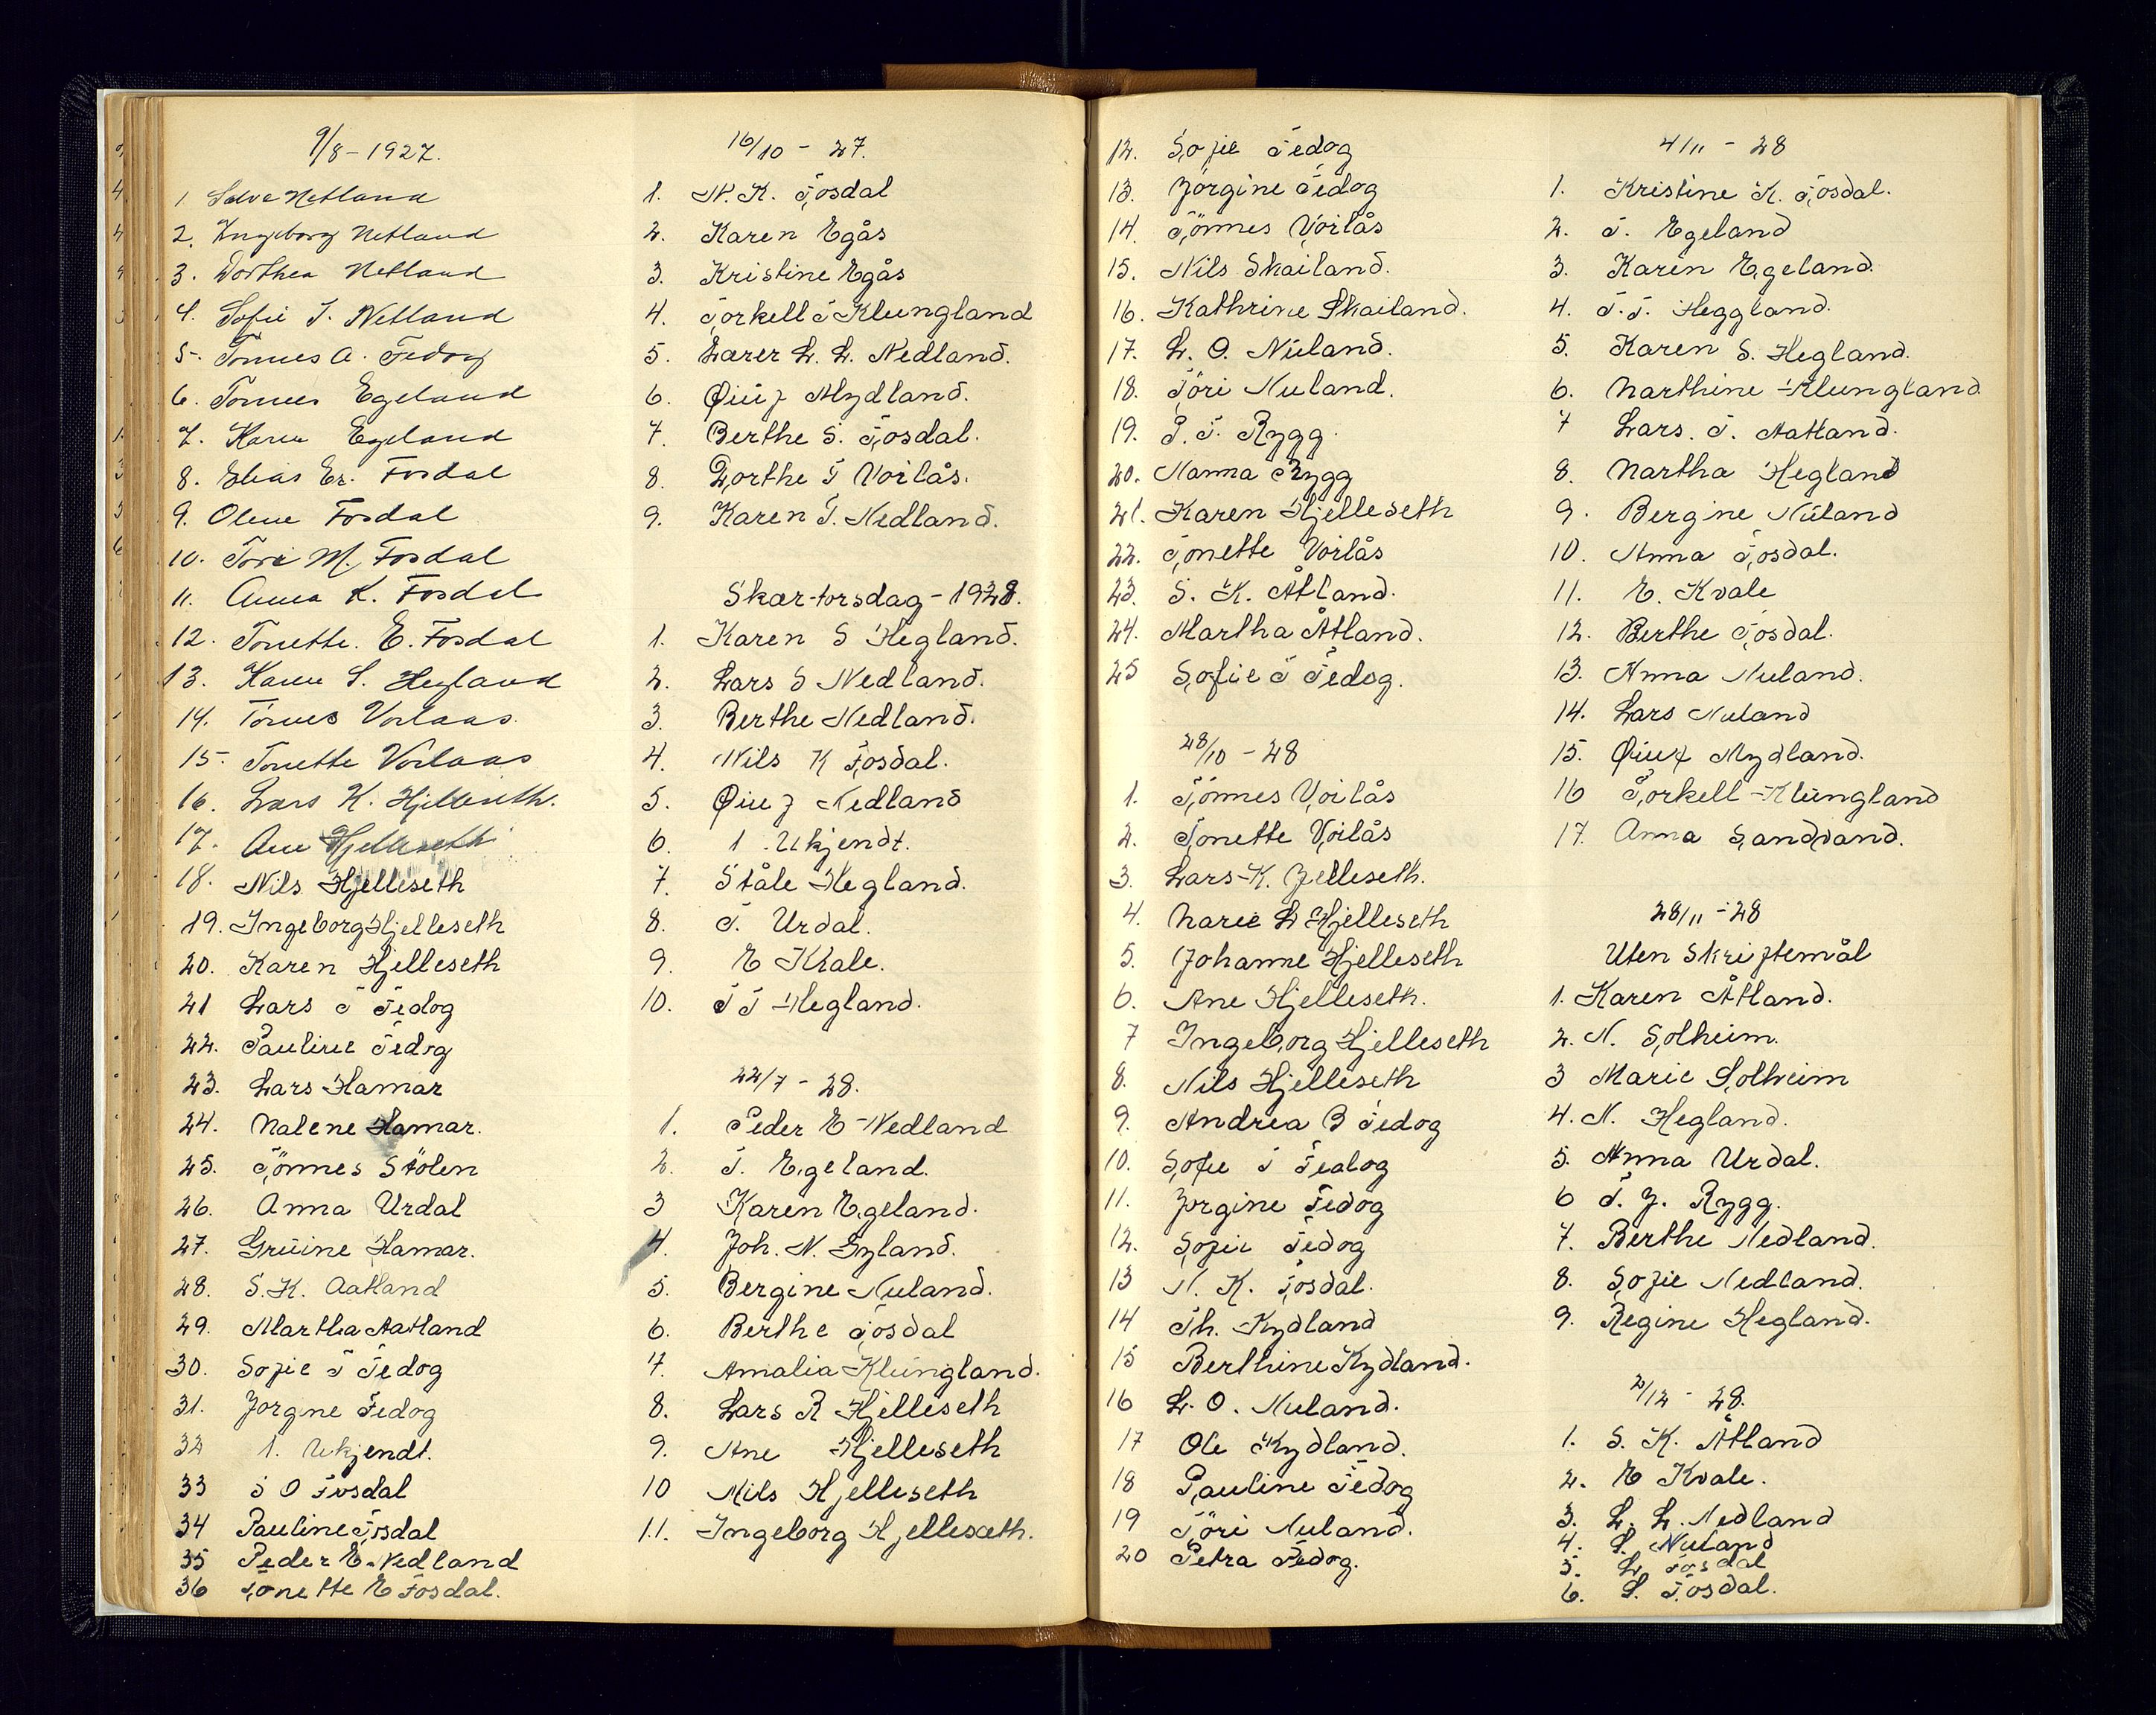 9/8 - 1927.
1 Salve Netland
2. Ingeborg Netland
3. Dorthea Netland
4. Sofie T. Netland
5. Tönnes A. Fedog
6. Tönnes Egeland
7. Karen Egeland
8. Elias Er. Fosdal
9. Olene Fosdal
10. Tori M. Fosdal
11. Anna K. Fosdal
12. Tonette. E. Fosdal
13. Karen S. Hegland
14. Tönnes Vorlaas
15. Tonette Vorlaas
16. Lars K. Hjelleseth.
17. Ane Hjelleseth
18. Nils Hjelleseth
19. Ingeborg Hjelleseth
20. Karen Hjelleseth
21 Lars T Fedog
22. Pauline Fedog
23. Lars Hamar
24. Malene Hamar.
25. Tönnes Stölen
26. Anna Urdal
27. Gruine Hamar.
28. S. K. Aatland
29. Martha Aatland
30. Sofie T Fedog
31. Jorgine Fedog
32 1. Ukjendt.
33 S O Fosdal
34 Pauline Fosdal
35 Peder E. Nedland
36 Tönette E Fosdal.
16/10 - 27.
1. N. K. Fosdal
2. Karen Egås
3. Kristine Egås
4. Torkell T Klungland
5. Lærer L. L. Nedland.
6. Øiuf Mydland.
7. Berthe S. Fosdal.
8. Dorthe T Voilås.
9. Karen T. Nedland.
Skær-torsdag - 1928.
1. Karen S Hegland.
2. Lars S Nedland.
3. Berthe Nedland.
4. Nils K Fosdal.
5. Øiuf Nedland
6. 1 Ukjendt.
7. Ståle Hegland.
8. T. Urdal.
9. E Kvale.
10. T T Hegland.
22/7 - 28.
1. Peder E Nedland
2. T. Egeland.
3 Karen Egeland.
4. Joh. N. Gyland.
5. Bergine Nuland.
6. Berthe Fosdal
7. Amalia Klungland.
8. Lars R Hjelleseth
9. Ane Hjelleseth
10 Nils Hjelleseth
11. Ingeborg Hjelleseth.
12. Sofie Fedog
13. Jörgine Fedog
14. Tönnes Voilås
15. Nils Skailand.
16. Kathrine Skailand.
17. L. O. Nuland.
18. Töri Nuland.
19. P. T. Rygg.
20. Nanna Rygg
21. Karen Hjelleseth
22. Tonette Voilås
23. S. K. Åtland.
24. Martha Åtland.
25 Sofie T Fedog.
28/10 - 28
1. Tönnes Voilås
2. Tonette Voilås
3. Lars K. Jelleseth.
4. Marie L Hjelleseth
5. Johanne Hjelleseth
6. Ane Hjelleseth.
7 Ingeborg Hjelleseth
8. Nils Hjelleseth
9. Andrea B Fedog
10. Sofie T Fedog
11. Jorgine Fedog
12. Sofie Fedog
13 N. K. Fosdal.
14 Th. Kydland
15 Berthine Kydland.
16 L. O. Nuland.
17 Ole Kydland.
18 Pauline Fedog
19 Töri Nuland.
20 Petra Fedog.
4/11 - 28
1. Kristine K. Fosdal.
2. T. Egeland
3. Karen Egeland.
4. T. T. Heggland.
5. Karen S. Hegland.
6. Marthine Klungland
7 Lars. T. Aatland.
8. Martha Hegland
9. Bergine Nuland
10. Anna Fosdal.
11. E. Kvale
12. Berthe Fosdal.
13. Anna Nuland.
14. Lars Nuland
15. Øiuf Mydland.
16 Torkell Klungland
17. Anna Sandvand.
28/11 - 28
Uten Skriftemål
1. Karen Åtland.
2. N. Solheim.
3 Marie Solheim
4. N. Hegland.
5. Anna Urdal.
6 T. J. Rygg.
7. Berthe Nedland.
8. Sofie Nedland.
9. Regine Hegland.
2/12 - 28.
1. S. K. Åtland
2. E Kvale.
3. L. L. Nedland
4. L. Nuland
5. L. Fosdal
6. S. Fosdal.